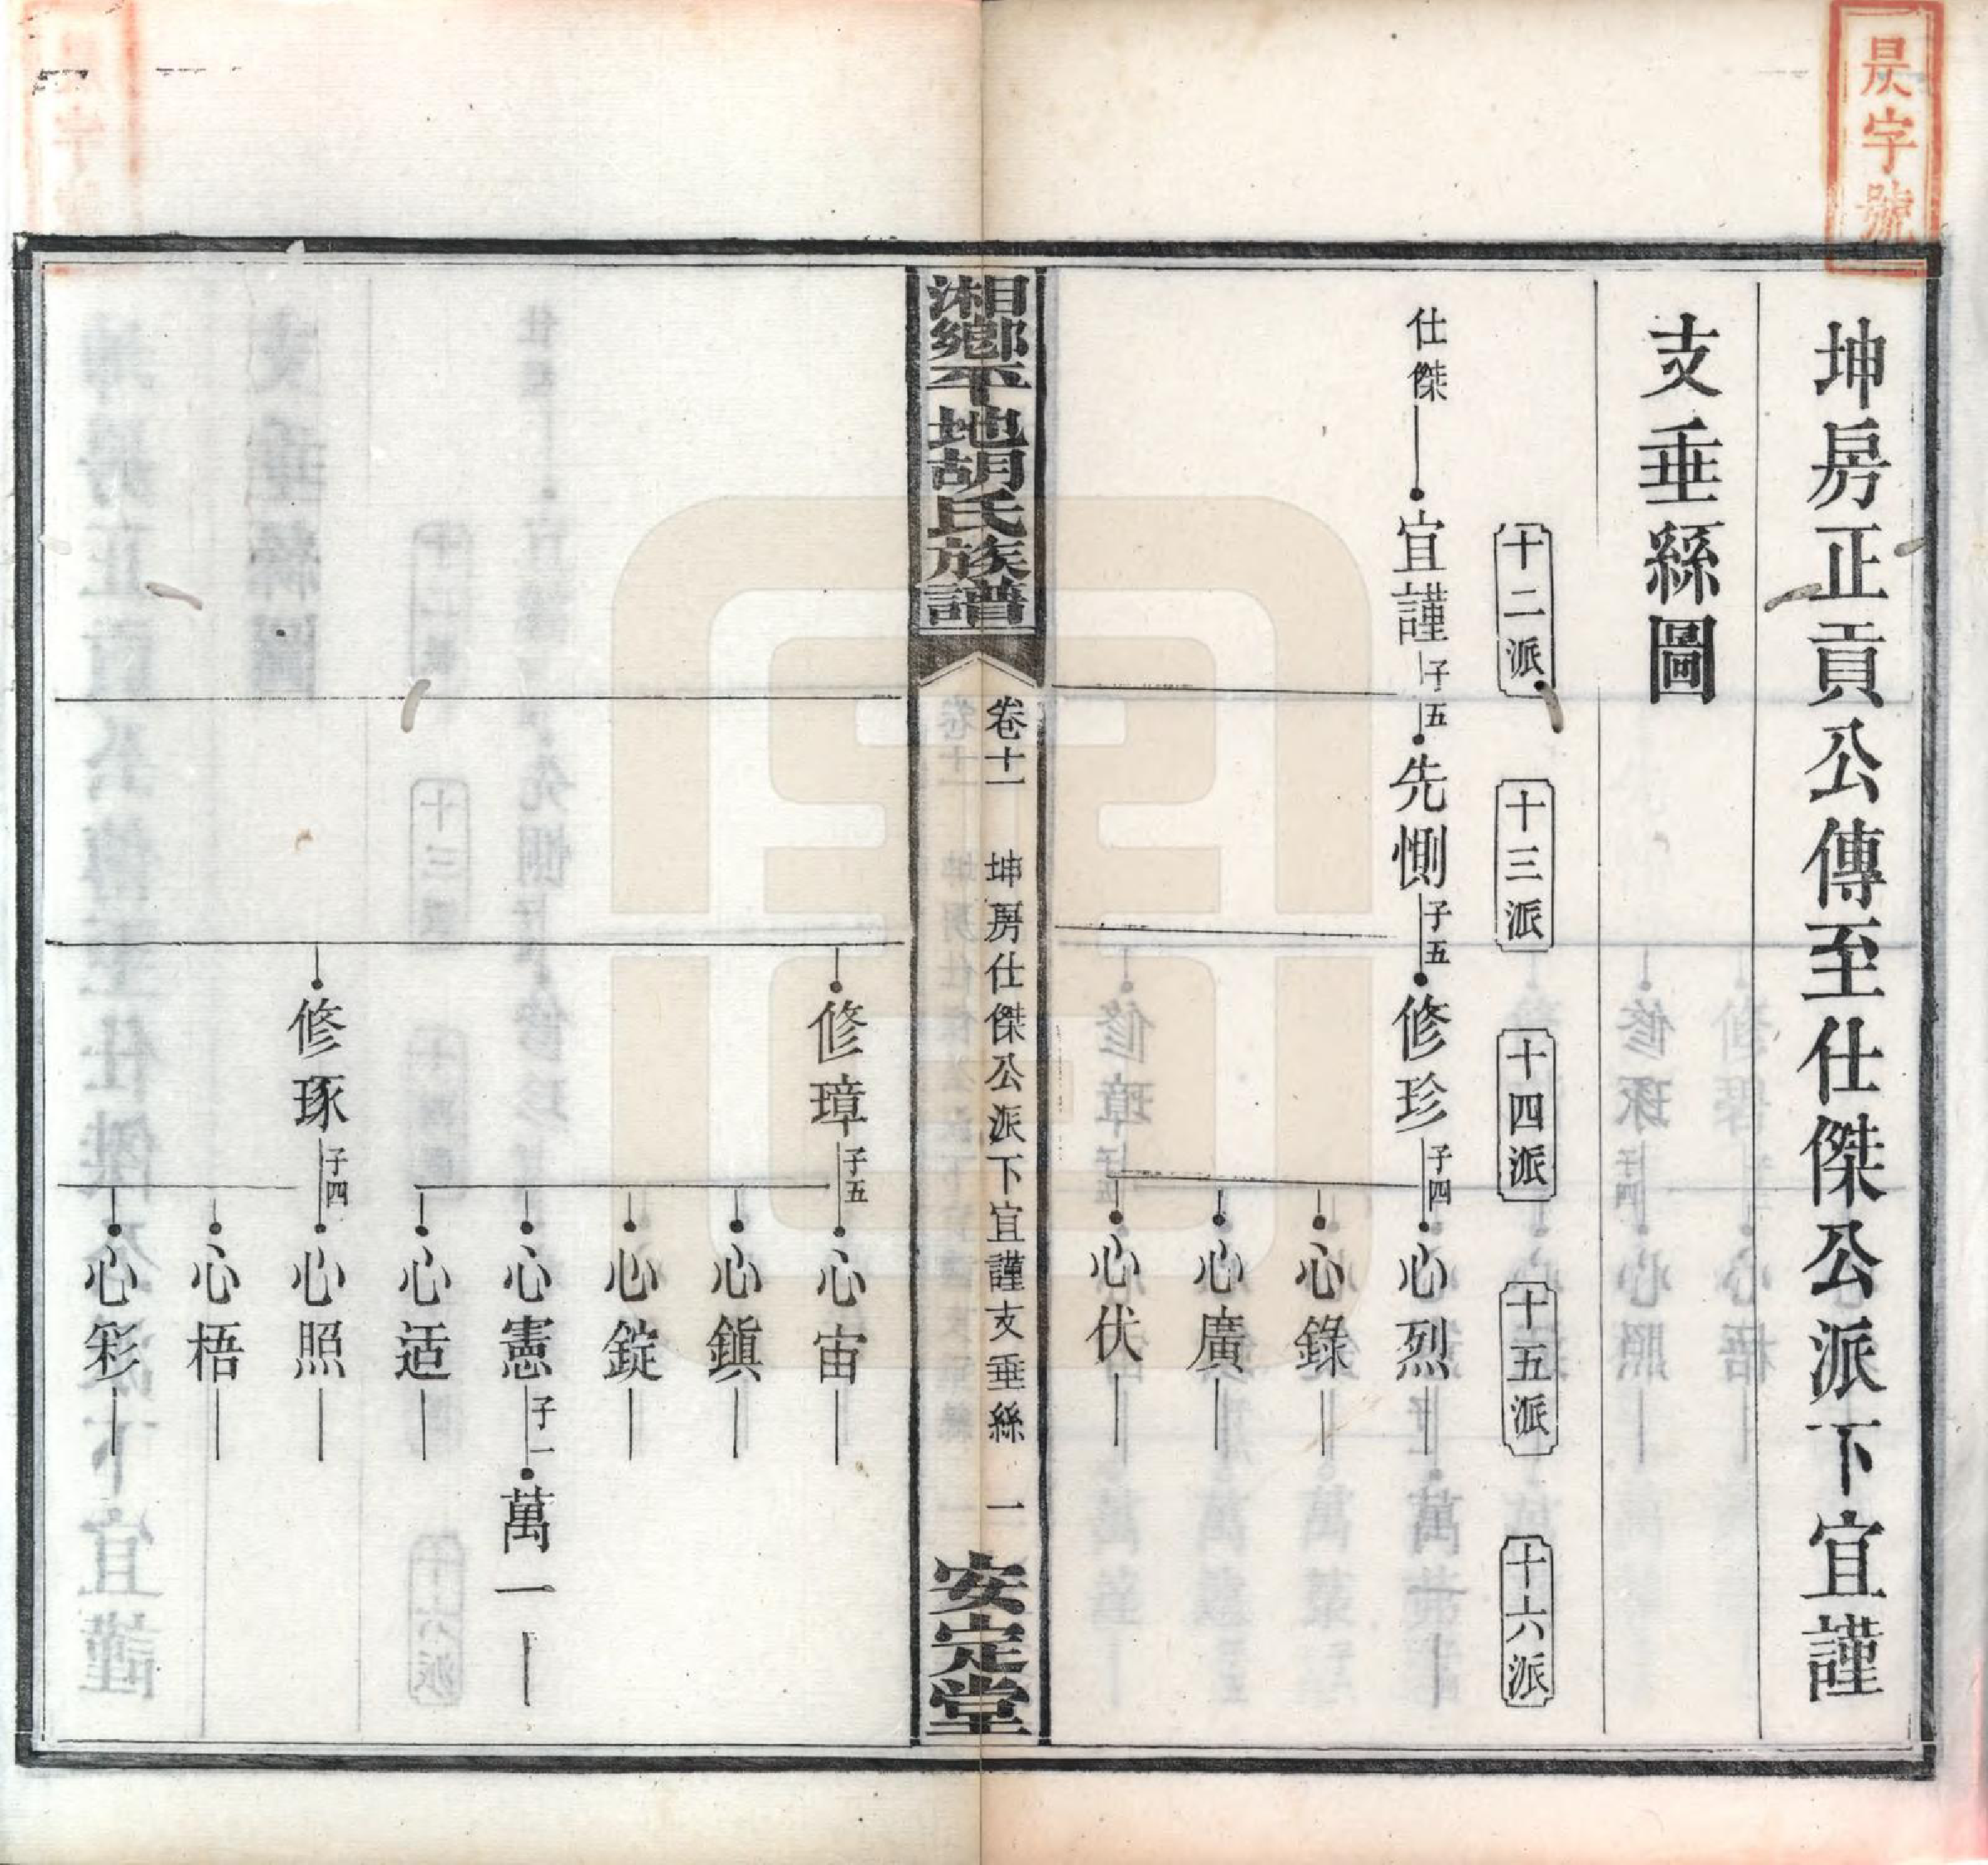 昃字號
坤房正貢公傳至仕傑公派下宜謹
支垂絲圖
十二派
十三派
十四派
十五派
十六派
仕傑
宜謹
子五
先惻
子五
修珍
子四
心烈
心錄
心廣
心伏
湘鄉平地胡氏族譜
卷十一
坤房仕傑公派下宜謹支垂絲
一
安定堂
修璋
子五
心宙
心鎮
心錠
心憲
子一
萬一
心适
修琢
子四
心照
心梧
心彩